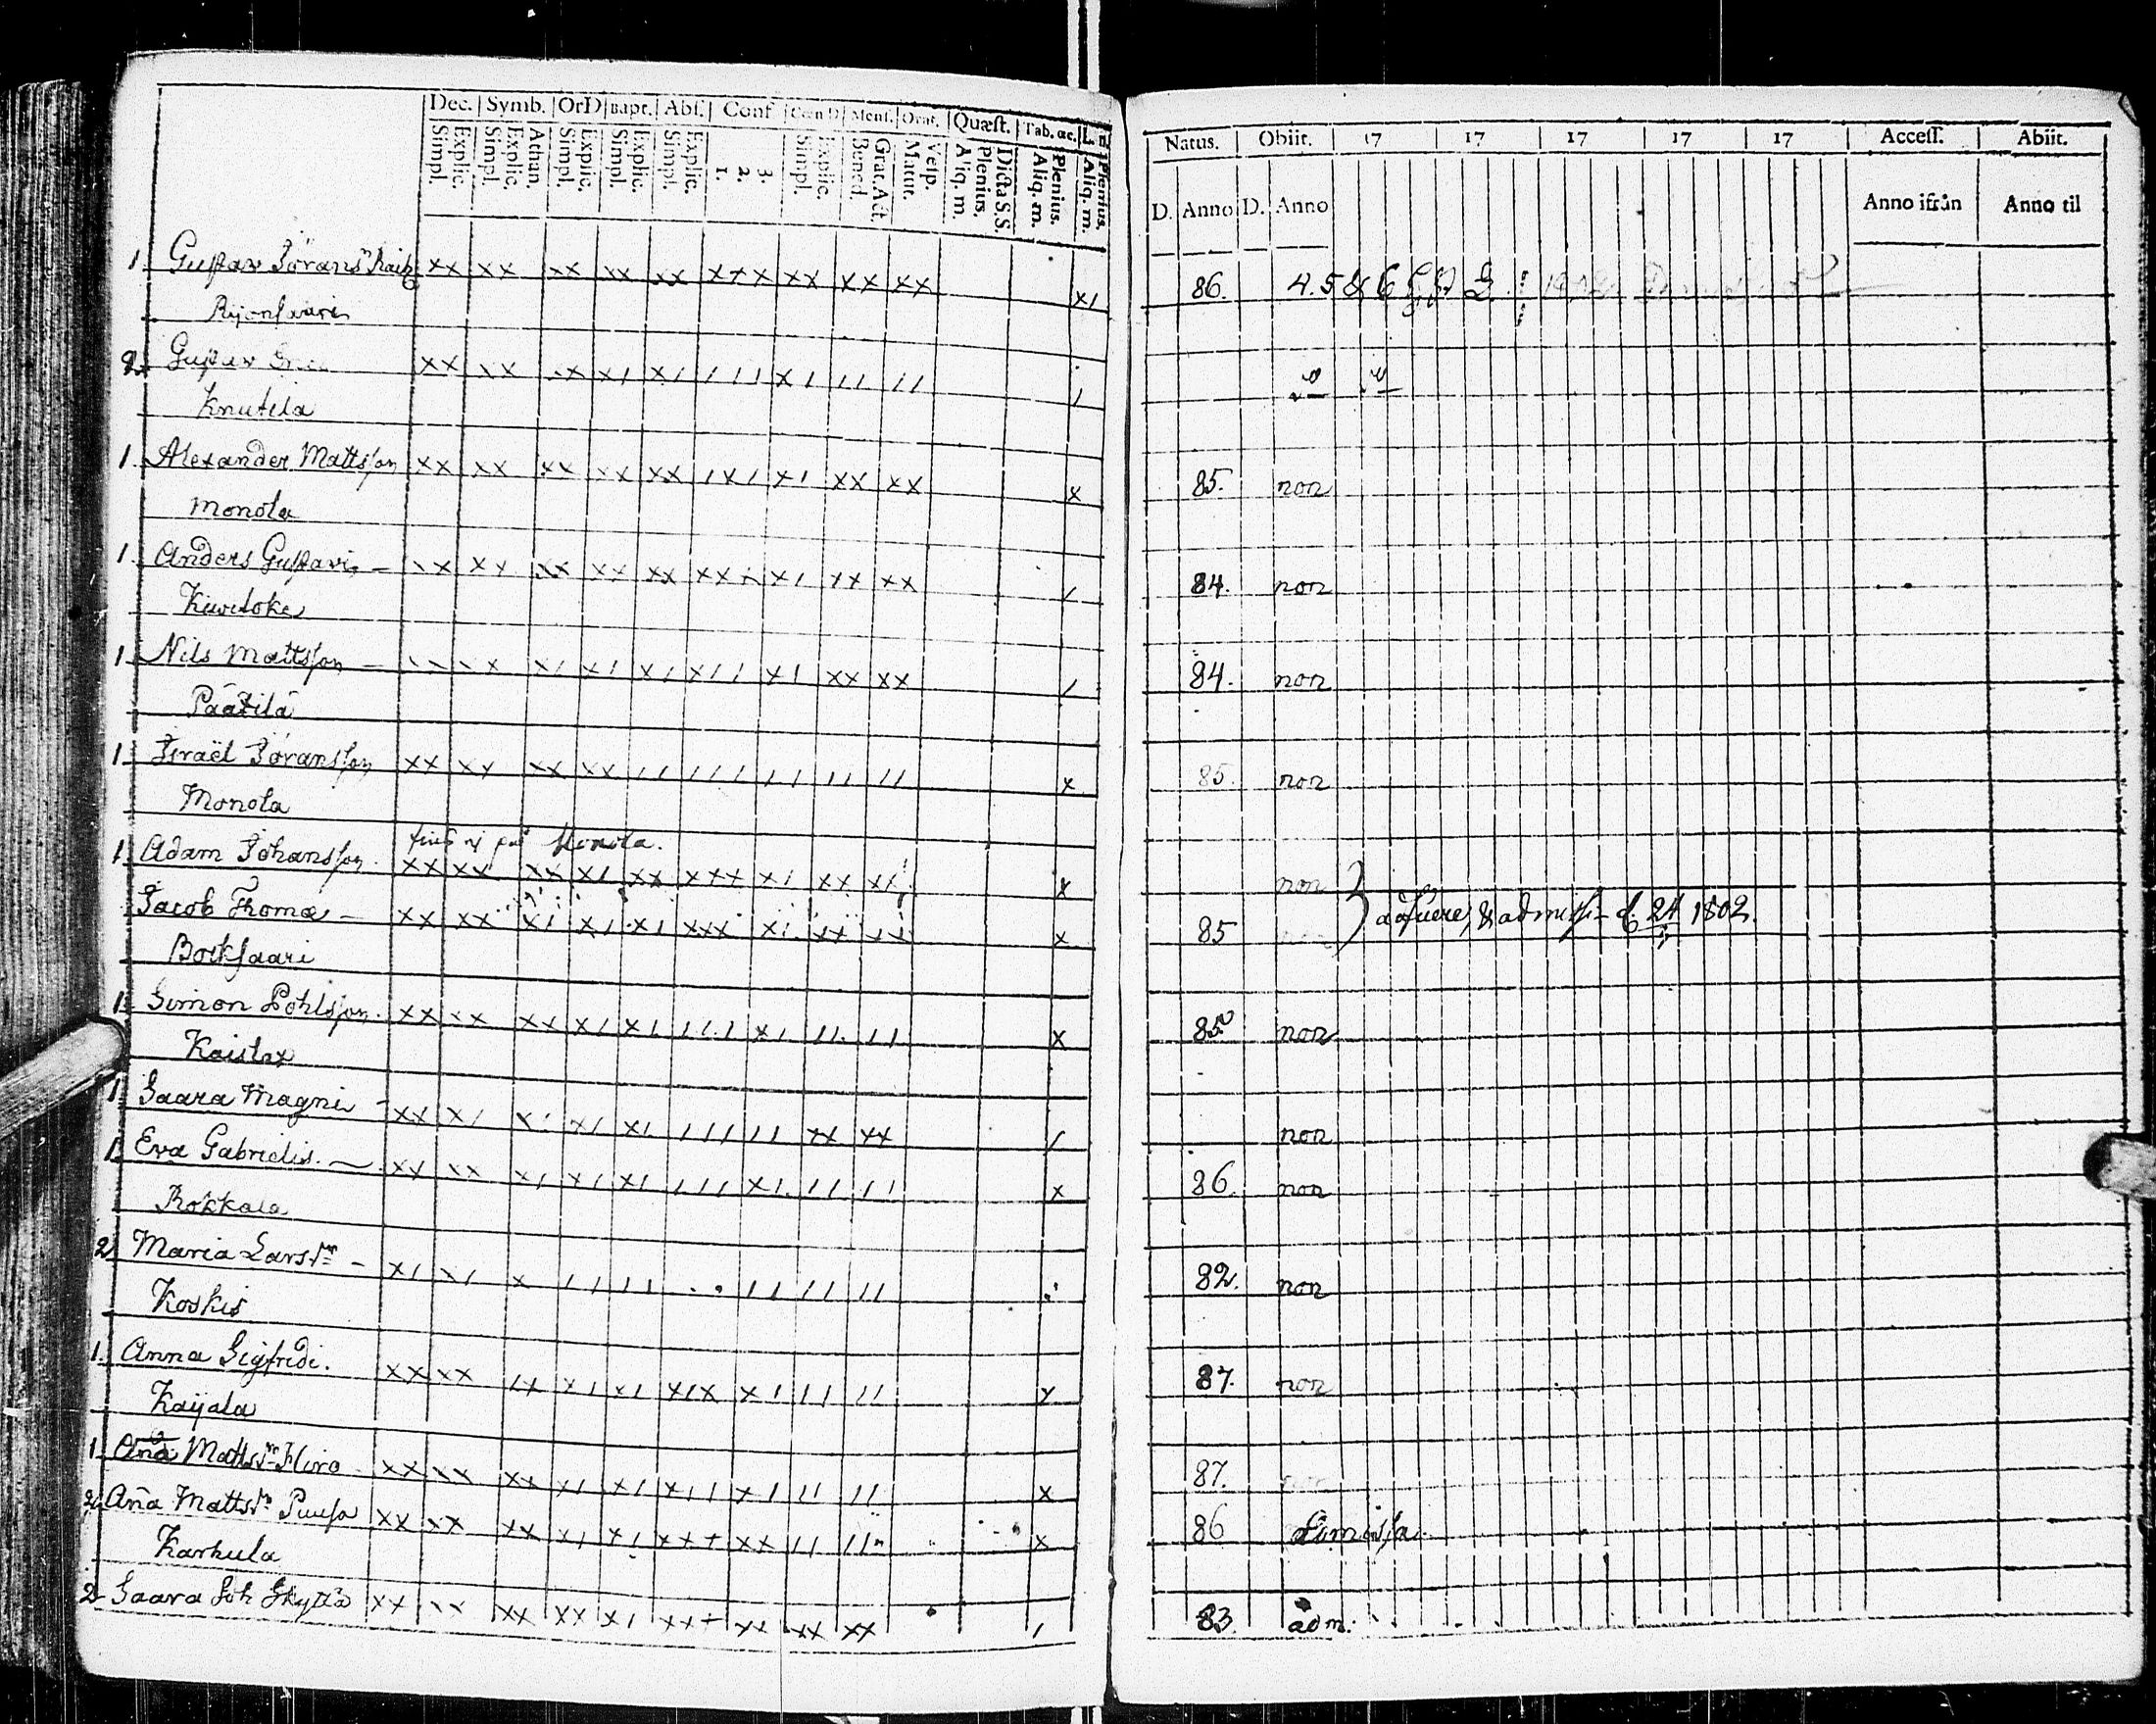 Dec. Symb. OrD Bapt. Abs. Conf Cœn D Mens. Orat. Quæst. Tab. œc. L. n.
Simpl. Explic. Simpl. Explic. Athan. Simpl. Explic. Simpl. Explic. Simpl. Explic. 1. 2. 3. Simpl. Explic. Bened. Grat. Act. Matut. Vesp. Aliq. m. Plenius. Dicta S.S. Aliq. m. Plenius. Aliq. m. Plenius.
Natus. Obiit. 17 17 17 17 17 Access. Abiit.
D. Anno D. Anno Anno ifrån Anno til
1. Gustav Jörans xx xx xx xx xx xxx xx xx xx x1 86. 4. 5 & 6
Rijonsaari
2. Gustav xx xx xx x1 x1 111 x1 11 11 1
Knutila
1. Alexander Mattsson xx xx xx xx xx 1x1 x1 xx xx x 85. non
Monola
1. Anders Gustavi xx xx xx xx xx x1 xx xx 1 84. non
1. Nils Mattsson x1 x1 x1 x11 x1 xx xx 1 84. non
Päätilä
1. Israël Jöransson xx xx xx xx 11 111 11 11 11 x 85. non
Monola
Monola.
1. Adam Johansson. xx xx xx x1 xx xxx x1 xx xx x non
Jacob Thomæ xx xx x1 x1 x1 xxx x1 xx xx x 85 & admiss. d. 24 1802.
Borksaari
1. Simon Pohlsson. xx xx xx x1 x1 111 x1 11 11 x 85 non
Kaistax
1. Saara Magni xx x1 x1 x1 111 11 xx xx 1 non
1. Eva Gabrielis. xx xx x1 x1 x1 111 x1 11 11 x 86. non
Rokkala
2 Maria Larsdr x1 x1 x 11 11 11 11 11 82. non
Koskis
1. Anna Sigfridi. xx xx 1x x1 x1 x1x x1 11 11 x 87. non
Kaijala
1. Ana Mattsdr xx xx xx x1 x1 x11 x1 11 11 x 87.
2. Ana Mattsdr xx xx xx x1 x1 xxx xx 11 11 x 86 dimissa
Karkula
2 Saara Joh Skyttä xx xx xx xx x1 xxx xx xx xx 1 83. adm.